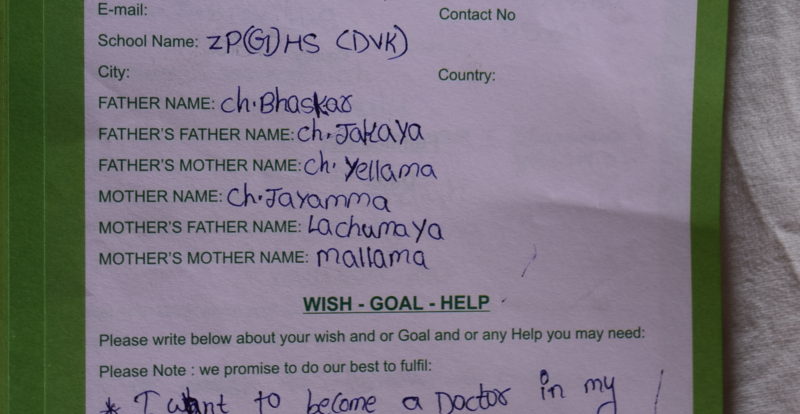 E-mail:
Contact No
School Name: ZP(G)HS (DVK)
City:
Country:
FATHER NAME: Ch.Bhaskar
FATHER'S FATHER NAME: Ch.Jakaya
FATHER'S MOTHER NAME: Ch. Yellama
MOTHER NAME: Ch.Jayamma
MOTHER'S FATHER NAME: Lachumaya
MOTHER'S MOTHER NAME: mallama
WISH - GOAL - HELP
Please write below about your wish and or Goal and or any Help you may need:
Please Note : we promise to do our best to fulfil:
* I want to become a Doctor in my